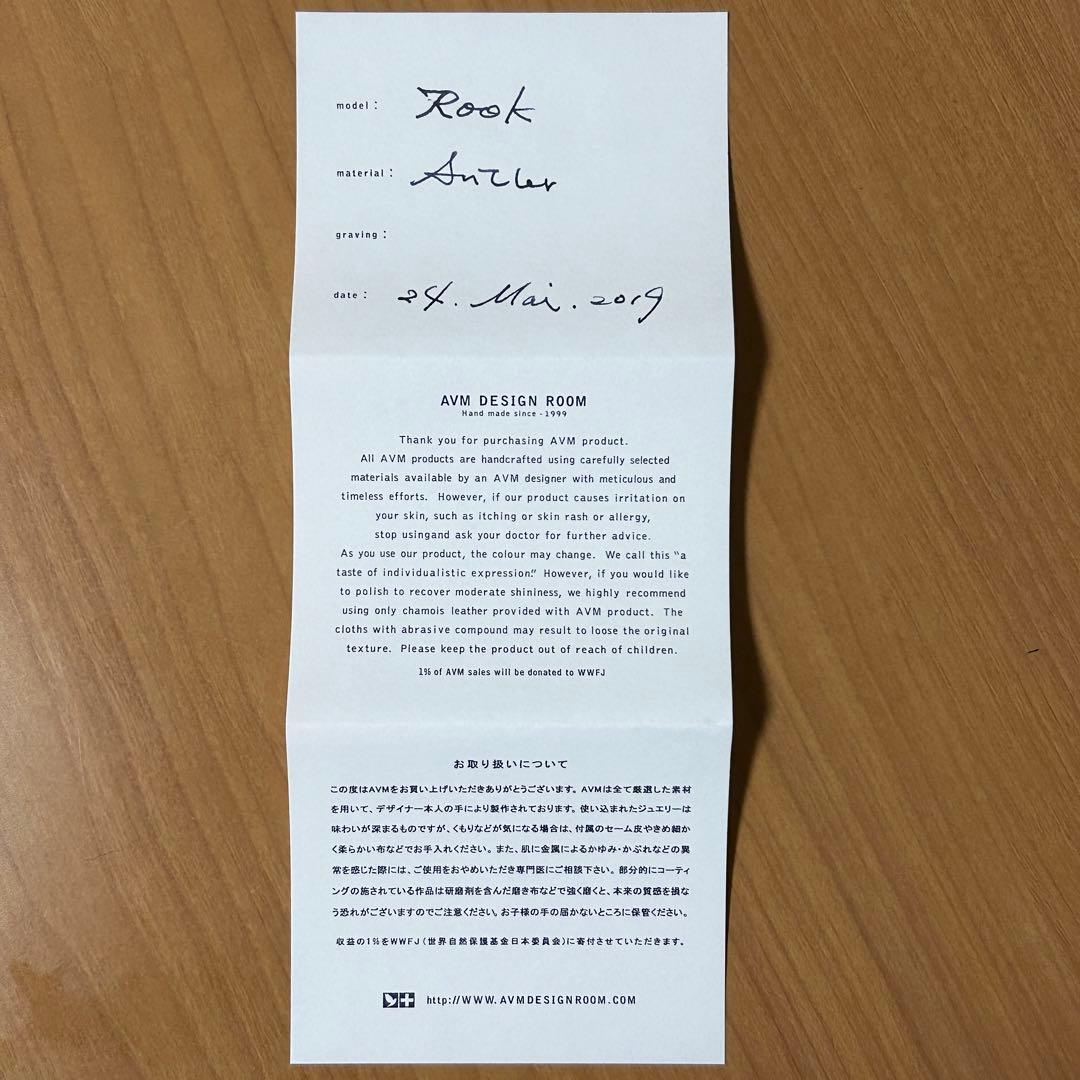 model : Rook
material : Antler
graving :
date : 24. Mai. 2019
AVM DESIGN ROOM
Hand made since - 1999
Thank you for purchasing AVM product.
All AVM products are handcrafted using carefully selected
materials available by an AVM designer with meticulous and
timeless efforts. However, if our product causes irritation on
your skin, such as itching or skin rash or allergy,
stop usingand ask your doctor for further advice.
As you use our product, the colour may change. We call this “a
taste of individualistic expression.” However, if you would like
to polish to recover moderate shininess, we highly recommend
using only chamois leather provided with AVM product. The
cloths with abrasive compound may result to loose the original
texture. Please keep the product out of reach of children.
1% of AVM sales will be donated to WWFJ
お取り扱いについて
この度はAVMをお買い上げいただきありがとうございます。AVMは全て厳選した素材
を用いて、デザイナー本人の手により製作されております。使い込まれたジュエリーは
味わいが深まるものですが、くもりなどが気になる場合は、付属のセーム皮やきめ細か
く柔らかい布などでお手入れください。また、肌に金属によるかゆみ・かぶれなどの異
常を感じた際には、ご使用をおやめいただき専門医にご相談下さい。部分的にコーティ
ングの施されている作品は研磨剤を含んだ磨き布などで強く磨くと、本来の質感を損な
う恐れがございますのでご注意ください。お子様の手の届かないところに保管ください。
収益の1%をWWFJ（世界自然保護基金日本委員会）に寄付させていただきます。
http://WWW.AVMDESIGNROOM.COM